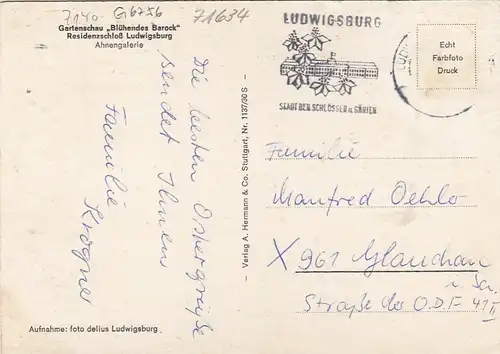 7140 G6756
71634
Gartenschau „Blühendes Barock"
Residenzschloß Ludwigsburg
Ahnengalerie
Die besten Ostergrüße
sendet Ihnen
Familie
Krogner
Aufnahme: foto delius Ludwigsburg
– Verlag A. Hermann & Co. Stuttgart, Nr. 1137/30 S –
LUDWIGSBURG
STADT DER SCHLÖSSER u. GÄRTEN
LUDW
Echt
Farbfoto
Druck
Familie
Manfred Oehlo
X 961 Glauchau
i. Sa.
Straße der O.D.F. 41 II